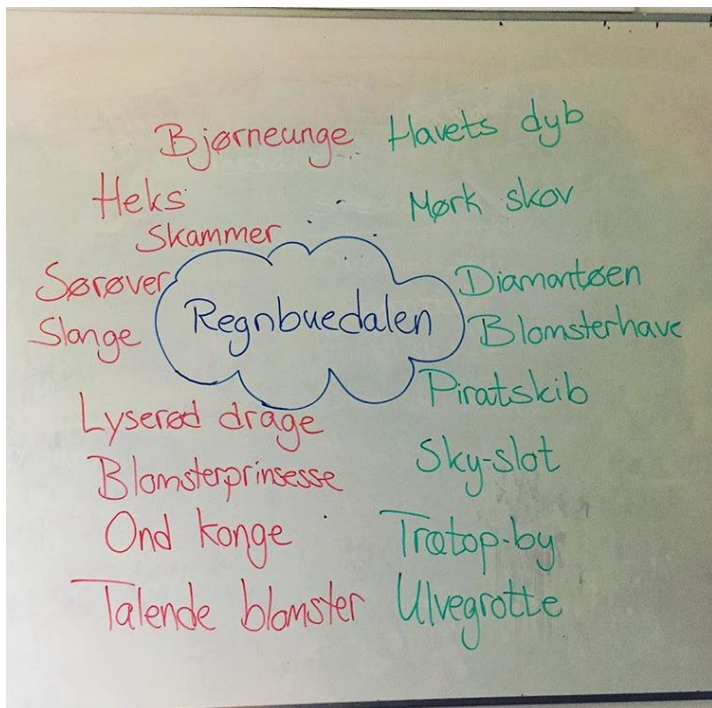 Bjørneunge
Heks
Skammer
Sørøver
Slange
Lyserød drage
Blomsterprinsesse
Ond konge
Talende blomster
Regnbuedalen
Havets dyb
Mørk skov
Diamantøen
Blomsterhave
Piratskib
Sky-slot
Trætop-by
Ulvegrotte